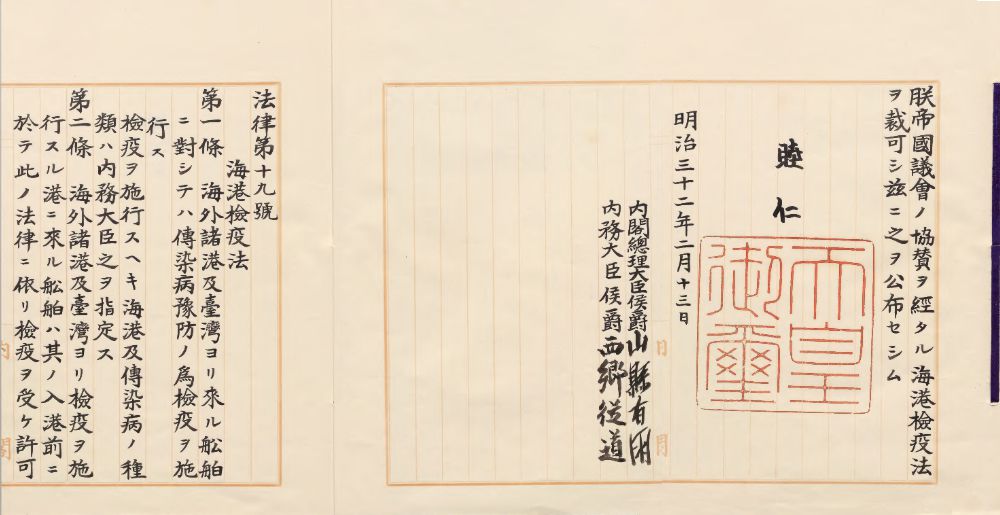 朕帝國議會ノ協賛ヲ經タル海港檢疫法
ヲ裁可シ茲ニ之ヲ公布セシム
睦仁
天皇
御璽
明治三十二年二月十三日
内閣總理大臣侯爵山縣有朋
内務大臣侯爵西郷従道
内閣
法律第十九號
海港檢疫法
第一條 海外諸港及臺灣ヨリ來ル船舶
ニ對シテハ傳染病豫防ノ爲檢疫ヲ施
行ス
檢疫ヲ施行スヘキ海港及傳染病ノ種
類ハ内務大臣之ヲ指定ス
第二條 海外諸港及臺灣ヨリ檢疫ヲ施
行スル港ニ來ル船舶ハ其ノ入港前ニ
於テ此ノ法律ニ依リ檢疫ヲ受ケ許可